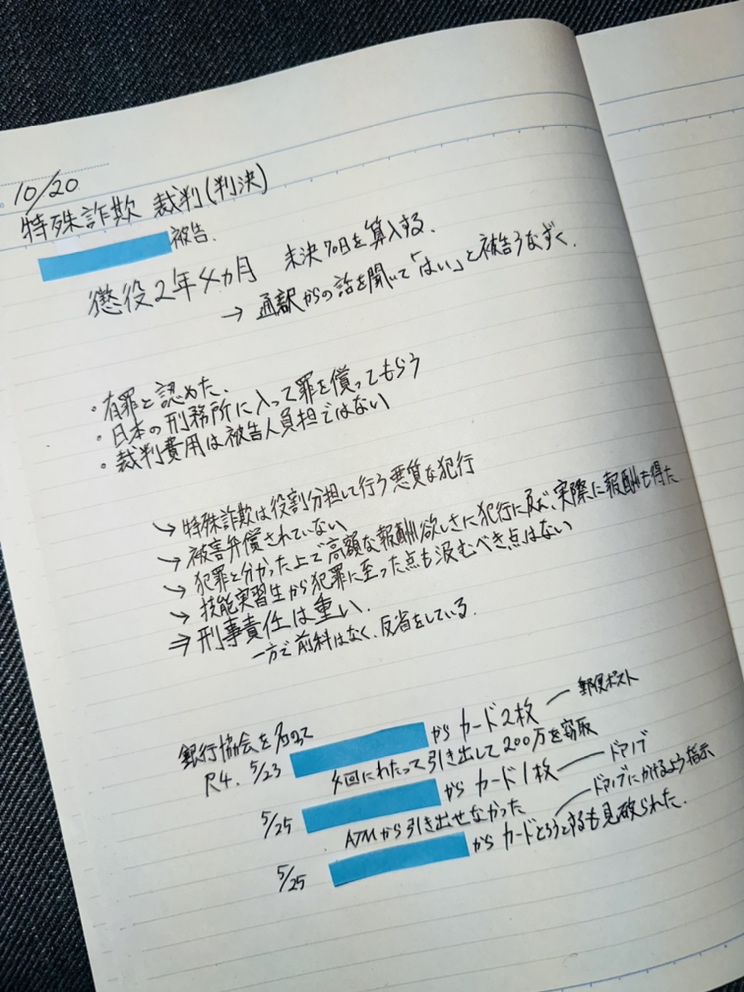 10/20
特殊詐欺 裁判(判決)
被告.
懲役2年4ヵ月 未決70日を算入する.
→ 通訳からの話を聞いて「はい」と被告うなずく.
・有罪と認めた.
・日本の刑務所に入って罪を償ってもらう
・裁判費用は被告人負担ではない
↘ 特殊詐欺は役割分担して行う悪質な犯行
↘ 被害弁償されていない
↘ 犯罪と分かった上で高額な報酬欲しさに犯行に及び、実際に報酬も得た
↘ 技能実習生から犯罪に至った点も汲むべき点はない
⇒ 刑事責任は重い.
一方で前科はなく、反省をしている.
銀行協会を名のって
R4. 5/23 から カード2枚 ー 郵便ポスト
4回にわたって引き出して200万を窃取
5/25 から カード1枚 ー ドアノブ
ATMから引き出せなかった
5/25 から カードとろうとするも見破られた. ー ドアノブにかけるよう指示